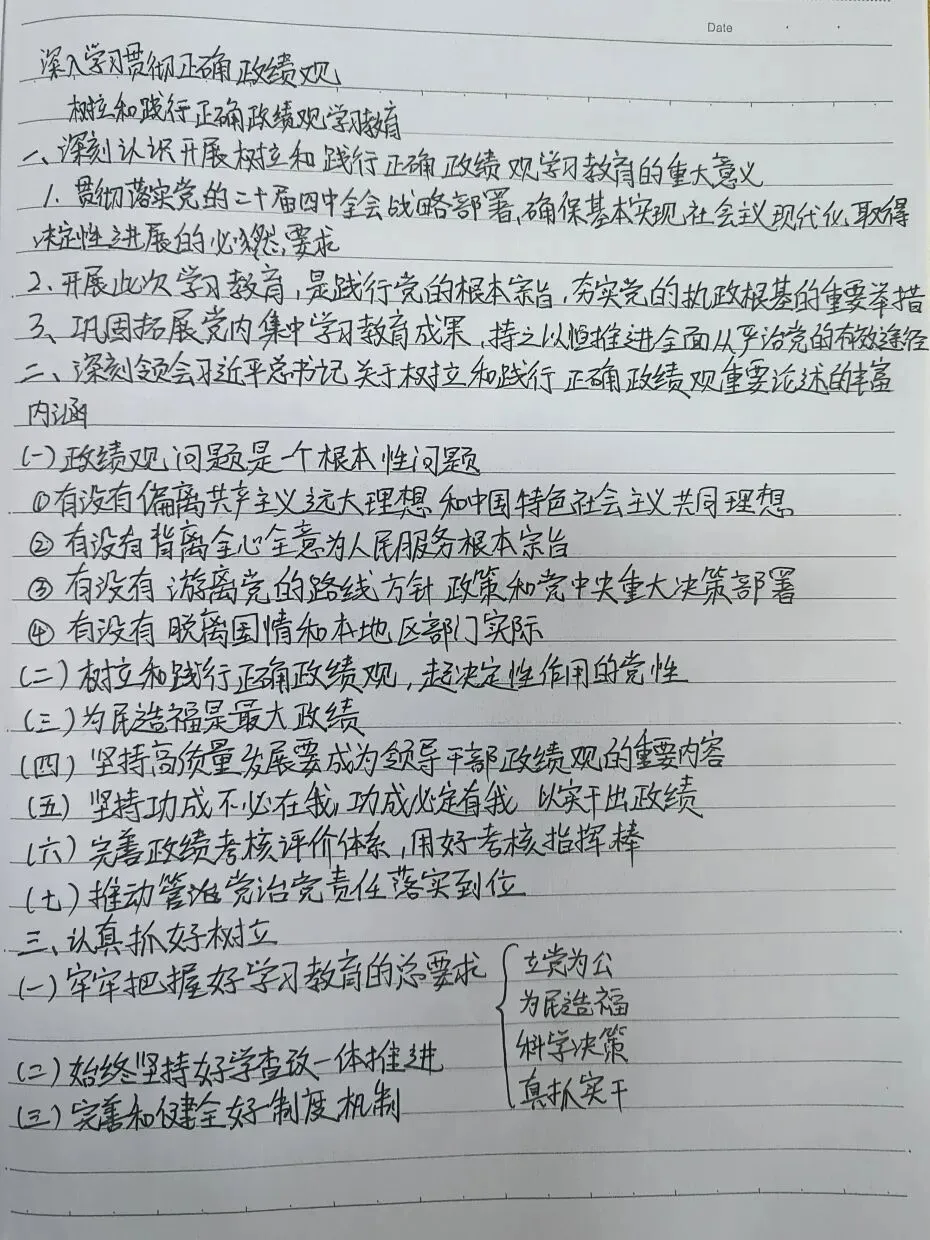 Date
深入学习贯彻正确政绩观
树立和践行正确政绩观学习教育
一、深刻认识开展树立和践行正确政绩观学习教育的重大意义
1. 贯彻落实党的二十届四中全会战略部署,确保基本实现社会主义现代化,取得
决定性进展的必然要求
2、开展此次学习教育,是践行党的根本宗旨,夯实党的执政根基的重要举措
3、巩固拓展党内集中学习教育成果,持之以恒推进全面从严治党的有效途径
二、深刻领会习近平总书记关于树立和践行正确政绩观重要论述的丰富
内涵
(一)政绩观问题是一个根本性问题
①有没有偏离共产主义远大理想和中国特色社会主义共同理想
②有没有背离全心全意为人民服务根本宗旨
③有没有游离党的路线方针政策和党中央重大决策部署
④有没有脱离国情和本地区部门实际
(二)树立和践行正确政绩观,起决定性作用的党性
(三)为民造福是最大政绩
(四)坚持高质量发展要成为领导干部政绩观的重要内容
(五)坚持功成不必在我,功成必定有我 以实干出政绩
(六)完善政绩考核评价体系,用好考核指挥棒
(七)推动管治党治党责任落实到位
三、认真抓好树立
(一)牢牢把握好学习教育的总要求
立党为公
为民造福
科学决策
真抓实干
(二)始终坚持好学查改一体推进
(三)完善和健全好制度机制